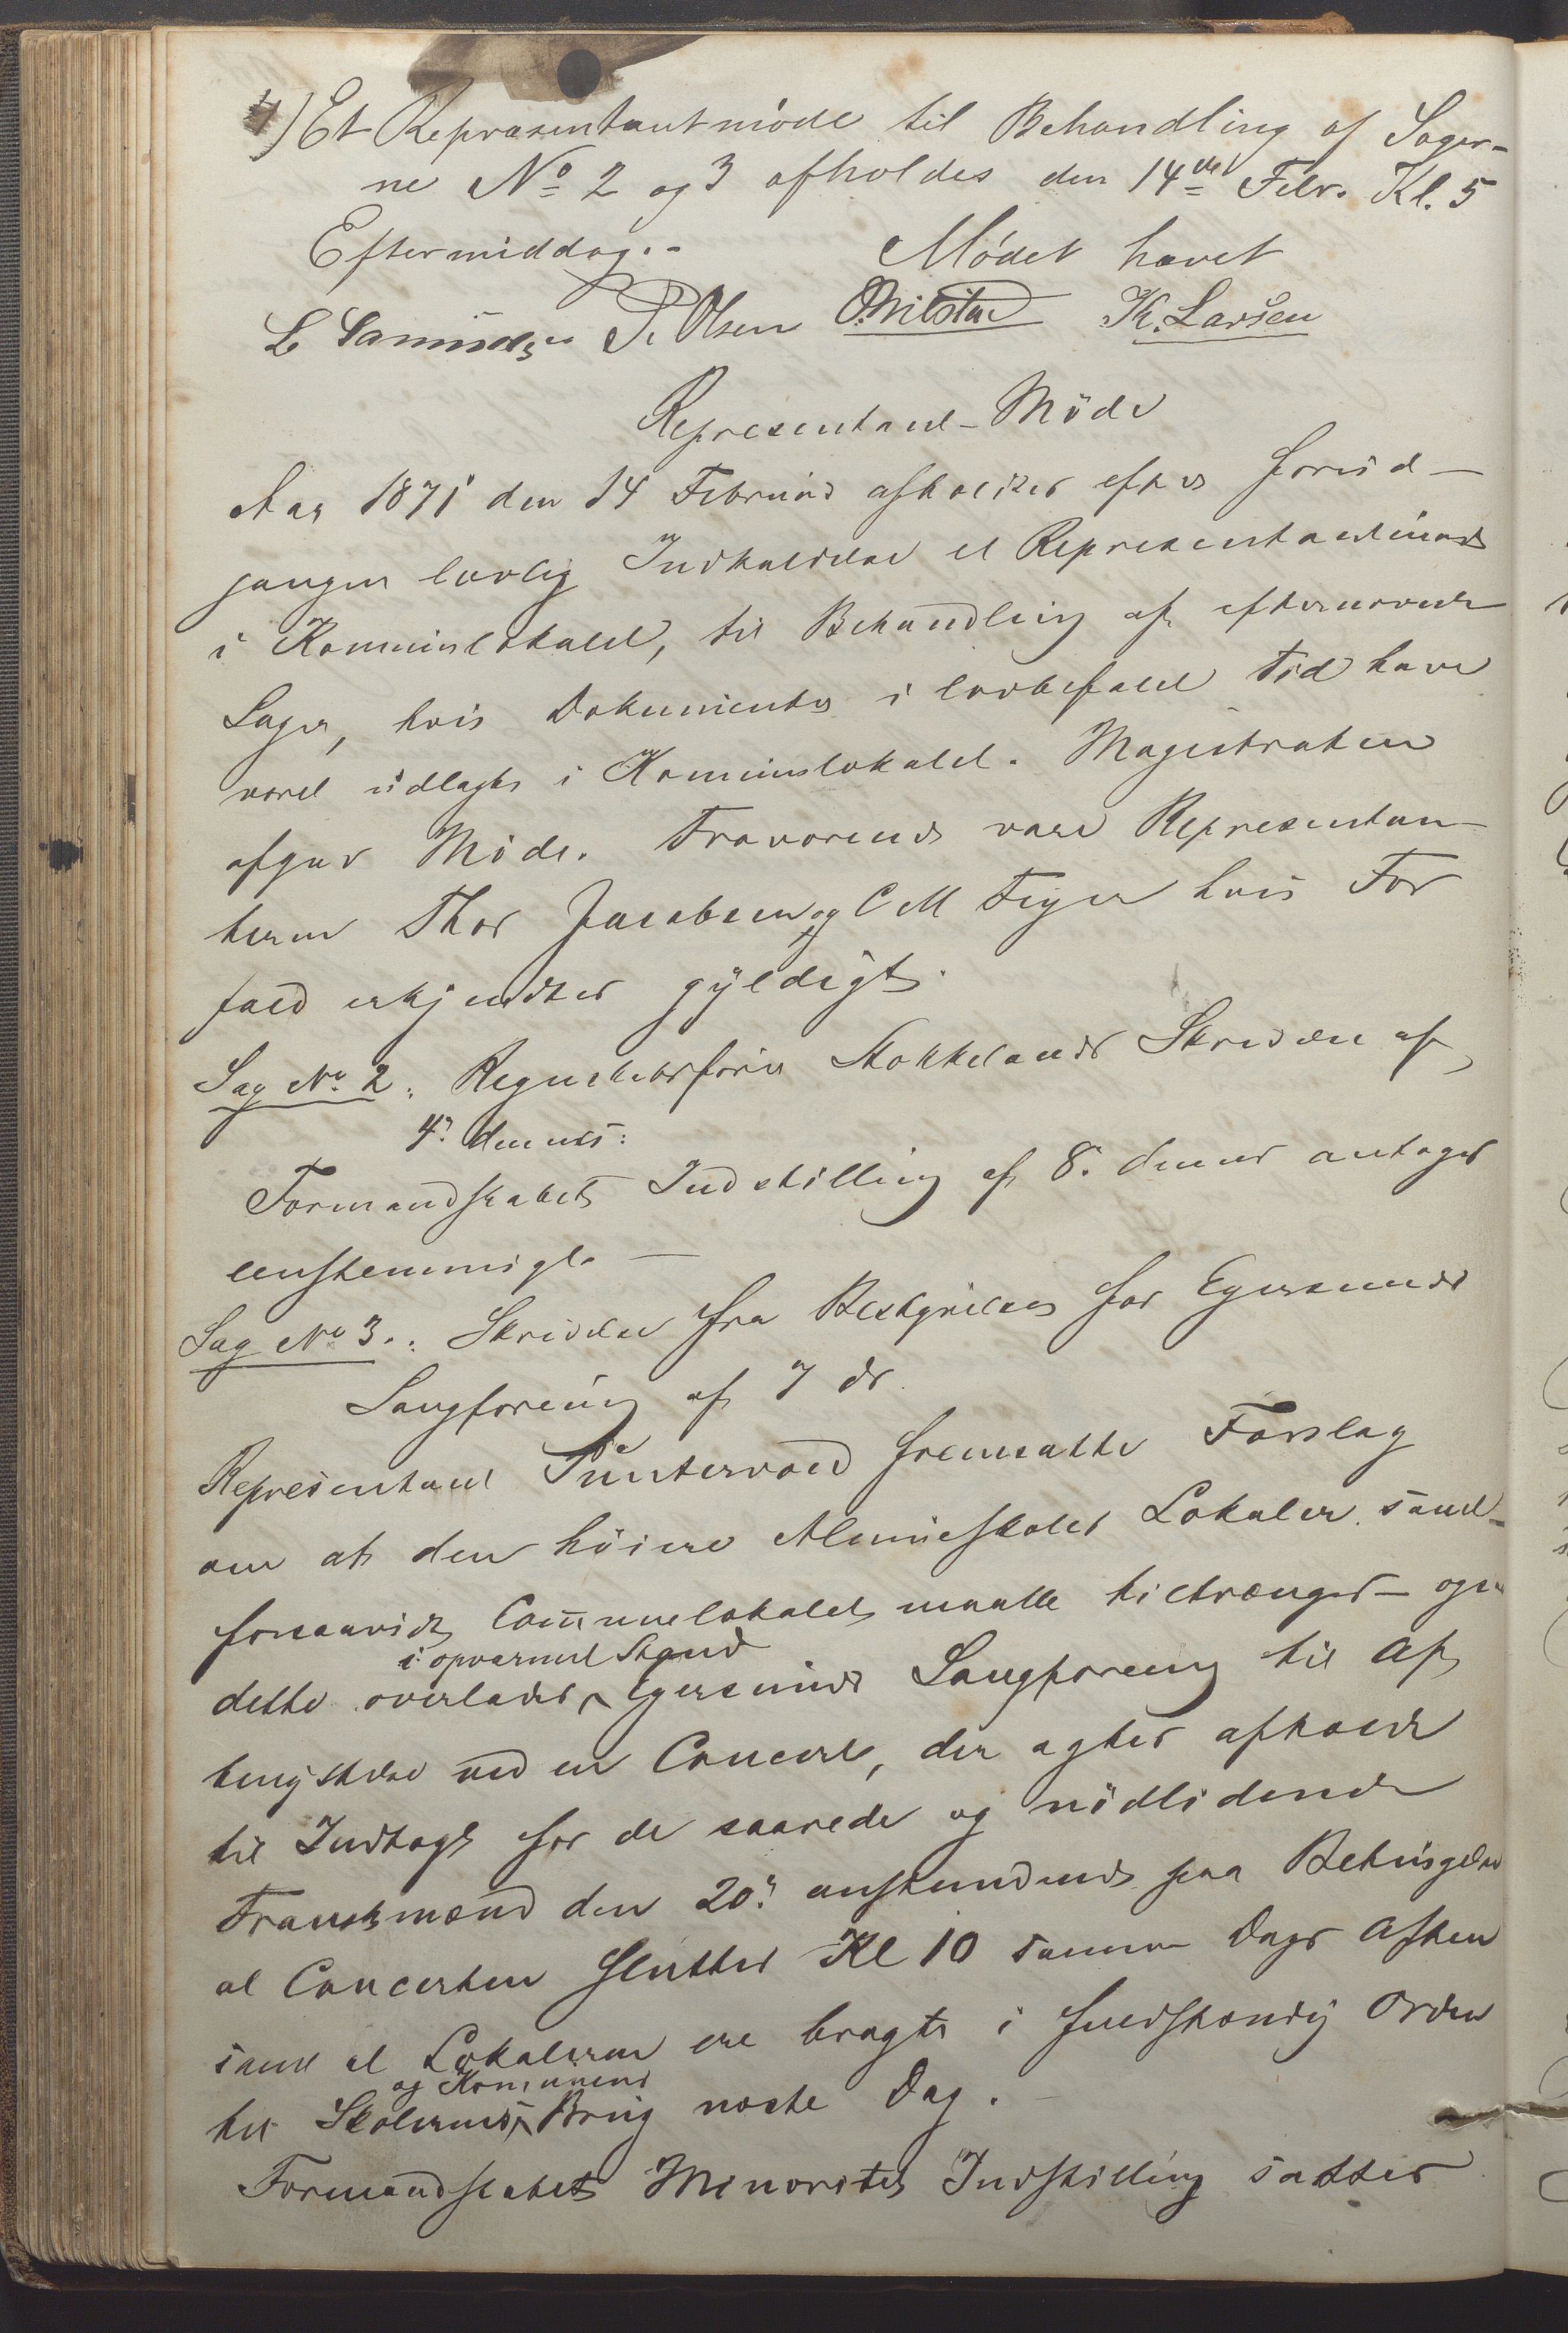 4) Et Repræsentantmöde til Behandling af Sager-
ne No 2 og 3 afholdes den 14de Febr. Kl. 5
Eftermiddag.- Mödet hævet
L Samuelsen P. Olsen O. Milstad K. Larsen
Representand-Möde
Aar 1871 den 14 Februar afholdtes efter forud-
gangen lovlig Indkaldelse et Representandmöde
i Kommunelokalet, til Behandling af efternævnte
Sager, hvis Dokumenter i lovbefalet Tid have
været udlagte i Kommunelokalet. Magistraten
afgav Möde. Fraværende vare Representan-
terne Thor Jacobsen og C M Feyer hvis For
fald erkjendtes gyldigt.
Sag No. 2. Regnskabsförer Stokkelands Skrivelse af
4. dennes:
Formandskabets Indstilling af 8. dennes antoges
eenstemmigt. —
Sag No 3.: Skrivelse fra Bestyrelsen for Egersunds
Sangforening af 7 ds.
Representant Puntervold fremsatte Forslag
om at den höiere Almueskoles Lokaler samt
forsaavidt Communelokalet maatte tiltrænges – ogsaa
i opvarmet Stand
dette overlades Egersunds Sangforening til Af
benyttelse ved en Concert, der agtes afholdt
til Indtægt for de saarede og nödlidende
Franskmænd den 20. anstundende paa Betingelse
at Concerten sluttes Kl 10 samme Dags Aften
samt at Lokalerne ere bragte i fuldstændig Orden
og Kommunens
til Skolernes Brug næste Dag. –
Formandskabets Minoritets Indstilling sattes